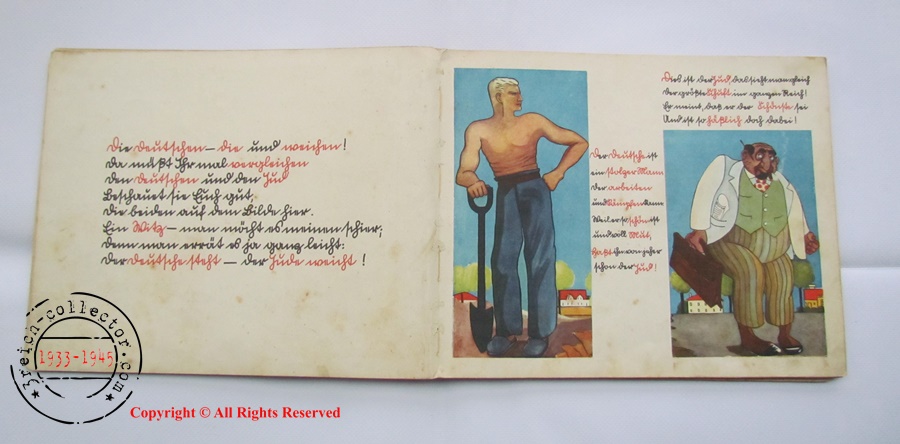 Die Deutschen – die und weichen!
Da müßt Ihr mal vergleichen
Den Deutschen und den Jud
Beschauet sie Euch gut,
Die beiden auf dem Bilde hier.
Ein Witz – man möcht es meinen schier;
Denn man errät es ja ganz leicht:
Der Deutsche steht – der Jude weicht!
Der Deutsche ist
ein stolzer Mann
Der arbeiten
und kämpfen kann
Weil er so schön ist
und voll Mut,
Haßt ihn von jeher
schon der Jud!
Dies ist der Jud, das sieht man gleich
Der größte Schuft im ganzen Reich!
Er meint, daß er der Schönste sei
Und ist so häßlich doch dabei!
3reich-collector.com
1933-1945
Copyright © All Rights Reserved